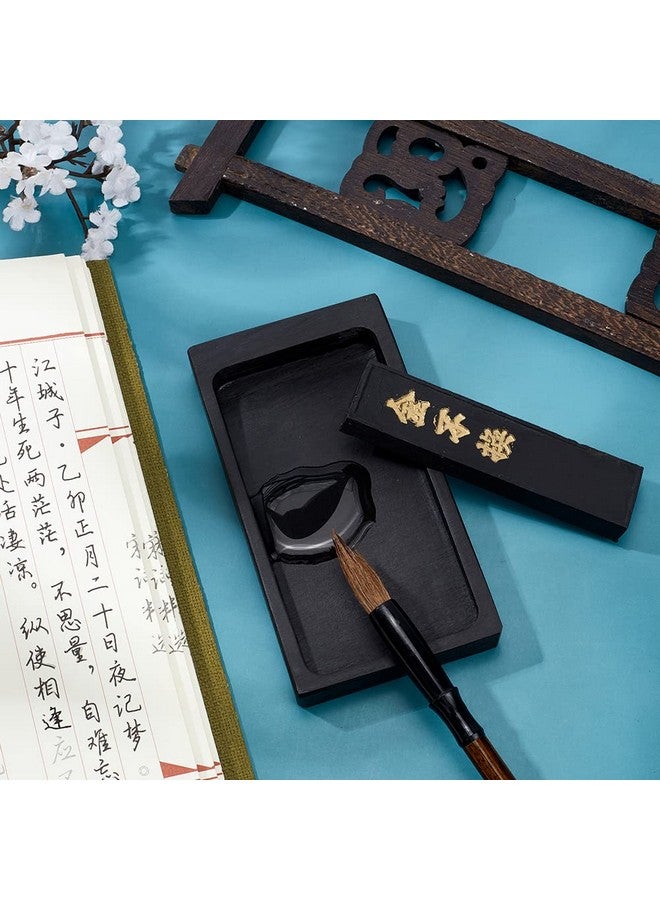 江城子·乙卯正月二十日夜记梦
十年生死两茫茫，不思量，自难忘
话凄凉。纵使相逢应
金不換